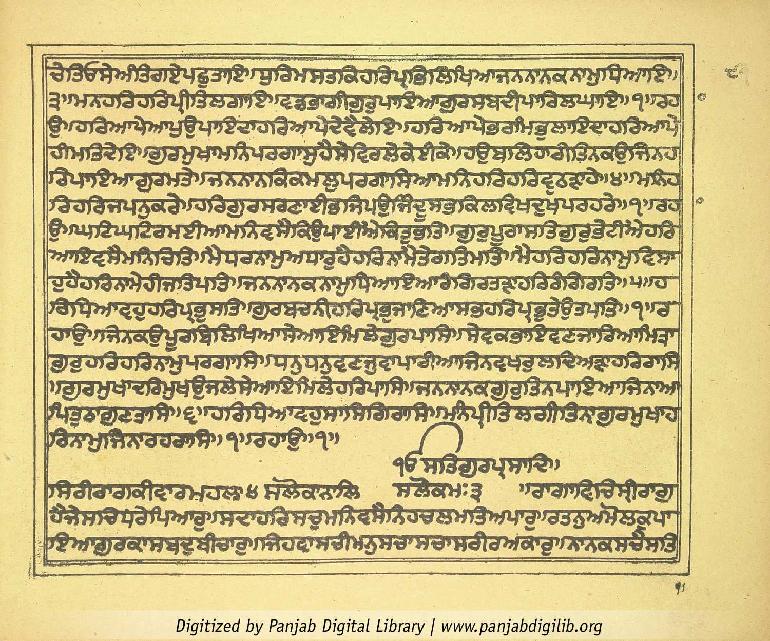 ਚੇਤਿਓਸੇਅੰਤਿਗਏਪਛੁਤਾਇ॥ਧੁਰਿਮਸਤਕਿਹਰਿਪ੍ਰਭਿਲਿਖਿਆਜਨਨਾਨਕਨਾਮੁਧਿਆਇ॥
੩॥ਮਨਹਰਿਹਰਿਪ੍ਰੀਤਿਲਗਾਇ॥ਵਡਭਾਗੀਗੁਰੁਪਾਇਆਗੁਰਸਬਦੀਪਾਰਿਲਘਾਇ॥੧॥ਰਹ
ਉ॥ਹਰਿਆਪੇਆਪੁਉਪਾਇਦਾਹਰਿਆਪੇਦੇਵੈਲੇਇ॥ਹਰਿਆਪੇਭਰਮਿਭੁਲਾਇਦਾਹਰਿਆਪੇ
ਹੀਮਤਿਦੇਇ॥ਗੁਰਮੁਖਾਮਨਿਪਰਗਾਸੁਹੈਸੇਵਿਰਲੇਕੇਈਕੇ॥ਹਉਬਲਿਹਾਰੀਤਿਨਕਉਜਿਨਹ
ਰਿਪਾਇਆਗੁਰਮਤੇ॥ਜਨਨਾਨਕਿਕਮਲੁਪਰਗਾਸਿਆਮਨਿਹਰਿਹਰਿਵੁਠੜਾਹੇ॥੪॥ਮਨਿਹ
ਰਿਹਰਿਜਪਨੁਕਰੇ॥ਹਰਿਗੁਰਸਰਣਾਈਭਜਿਪਉਜਿੰਦੂਸਭਕਿਲਵਿਖਦੁਖਪਰਹਰੇ॥੧॥ਰਹ
ਉ॥ਘਟਿਘਟਿਰਮਈਆਮਨਿਵਸੈਕਿਉਪਾਈਐਕਿਤੁਭਤਿ॥ਗੁਰੁਪੂਰਾਸਤਿਗੁਰੁਭੇਟੀਐਹਰਿ
ਆਇਵਸੈਮਨਿਚਿਤਿ॥ਮੈਧਰਨਾਮੁਅਧਾਰੁਹੈਹਰਿਨਾਮੈਤੇਗਤਿਮਤਿ॥ਮੈਹਰਿਹਰਿਨਾਮੁਵਿਸਾ
ਹੁਹੈਹਰਿਨਾਮੇਹੀਜਤਿਪਤਿ॥ਜਨਨਾਨਕਨਾਮੁਧਿਆਇਆਰੰਗਿਰਤੜਾਹਰਿਰੰਗਿਰਤਿ॥੫॥ਹ
ਰਿਧਿਆਵਹੁਹਰਿਪ੍ਰਭੁਸਤਿ॥ਗੁਰਬਚਨੀਹਰਿਪ੍ਰਭੁਜਾਣਿਆਸਭਹਰਿਪ੍ਰਭੁਤੇਉਤਪਤਿ॥੧॥ਰ
ਹਾਉ॥ਜਿਨਕਉਪੂਰਬਿਲਿਖਿਆਸੇਆਇਮਿਲੇਗੁਰਪਾਸਿ॥ਸੇਵਕਭਾਇਵਣਜਾਰਿਆਮਿਤ੍ਰਾ
ਗੁਰੁਹਰਿਹਰਿਨਾਮੁਪਰਗਾਸਿ॥ਧਨੁਧਨੁਵਣਜੁਵਾਪਾਰੀਆਜਿਨਵਖਰੁਲਦਿਅੜਾਹਰਿਰਾਸਿ
॥ਗੁਰਮੁਖਾਦਰਿਮੁਖਉਜਲੇਸੇਆਇਮਿਲੇਹਰਿਪਾਸਿ॥ਜਨਨਾਨਕਗੁਰੁਤਿਨਪਾਇਆਜਿਨਾਆ
ਪਿਤੁਠਾਗੁਣਤਾਸਿ॥੬॥ਹਰਿਧਿਆਵਹੁਸਾਸਿਗਿਰਾਸਿ॥ਮਨਿਪ੍ਰੀਤਿਲਗੀਤਿਨਾਗੁਰਮੁਖਾਹ
ਰਿਨਾਮੁਜਿਨਾਰਹਰਾਸਿ॥੧॥ਰਹਾਉ॥੧॥
ੴਸਤਿਗੁਰਪ੍ਰਸਾਦਿ॥
ਸਿਰੀਰਾਗਕੀਵਾਰਮਹਲਾ੪ਸਲੋਕਨਾਲਿ ਸਲੋਕਮਃ੩ ॥ਰਾਗਾਵਿਚਿਸ੍ਰੀਰਾਗੁ
ਹੈਜੇਸਚਿਧਰੇਪਿਆਰੁ॥ਸਦਾਹਰਿਸਚੁਮਨਿਵਸੈਨਿਹਚਲਮਤਿਅਪਾਰੁ॥ਰਤਨੁਅਮੋਲਕੁਪਾ
ਇਆਗੁਰਕਾਸਬਦੁਬੀਚਾਰੁ॥ਜਿਹਵਾਸਚੀਮਨੁਸਚਾਸਚਾਸਰੀਰਅਕਾਰੁ॥ਨਾਨਕਸਚੈਸਤਿ
Digitized by Panjab Digital Library | www.panjabdigilib.org